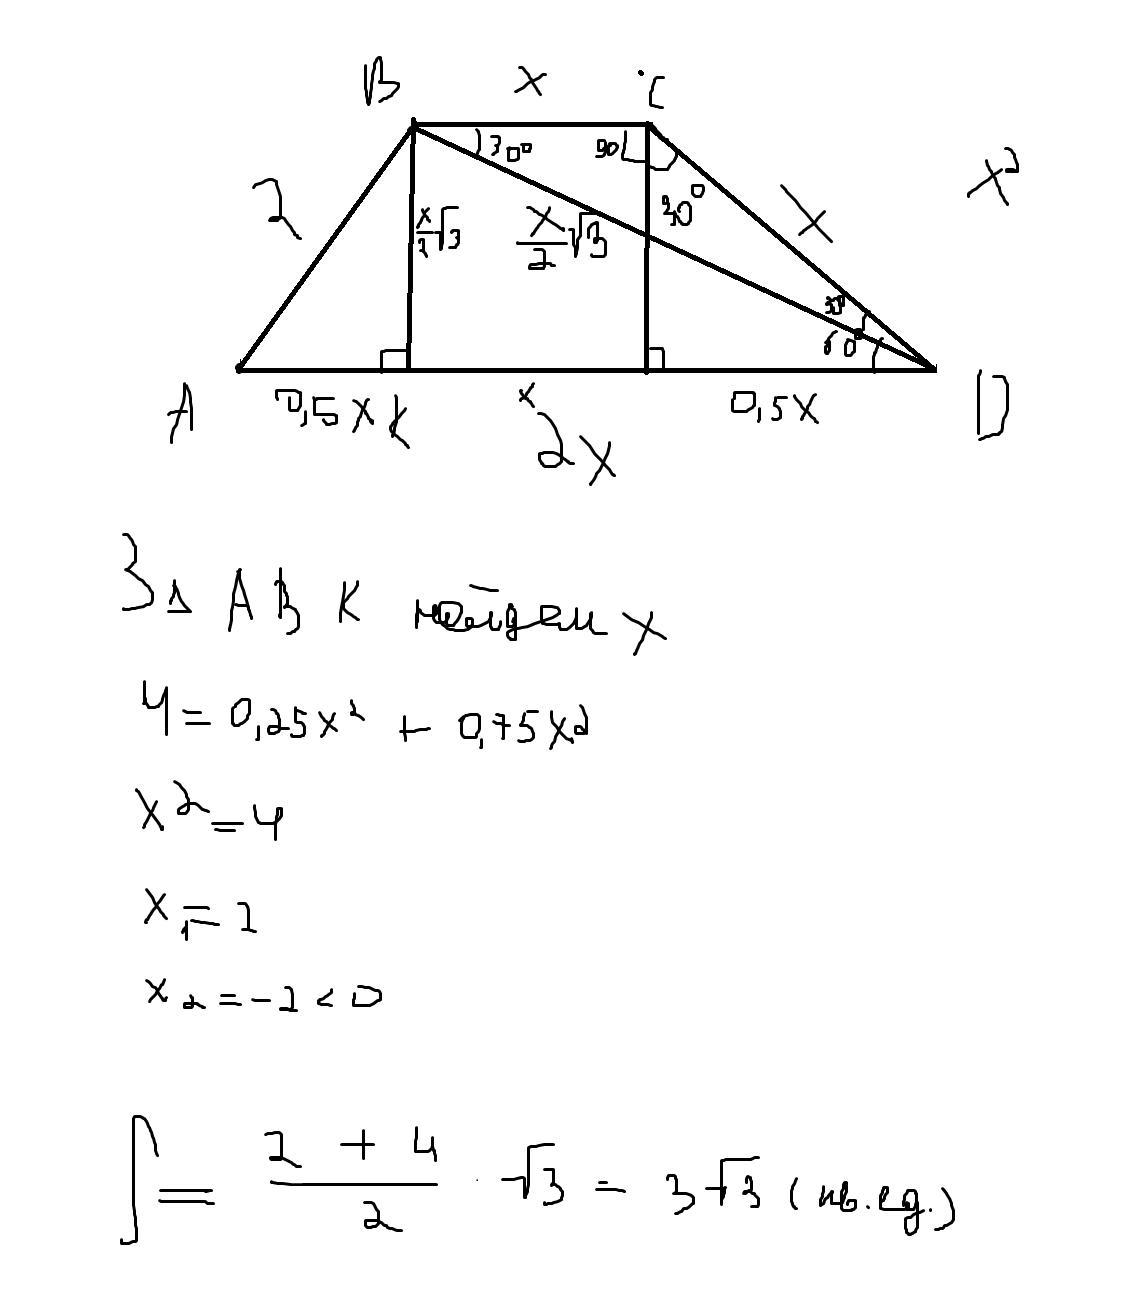 B x C
2 30° 90 30° x x²
x/2 √3 x/2 √3
30°
60°
A 0,5x K x 0,5x D
2x
З Δ ABK найдем x
4 = 0,25x² + 0,75x²
x² = 4
x₁ = 2
x₂ = -2 < 0
S = (2 + 4)/2 · √3 = 3√3 (кв.ед.)